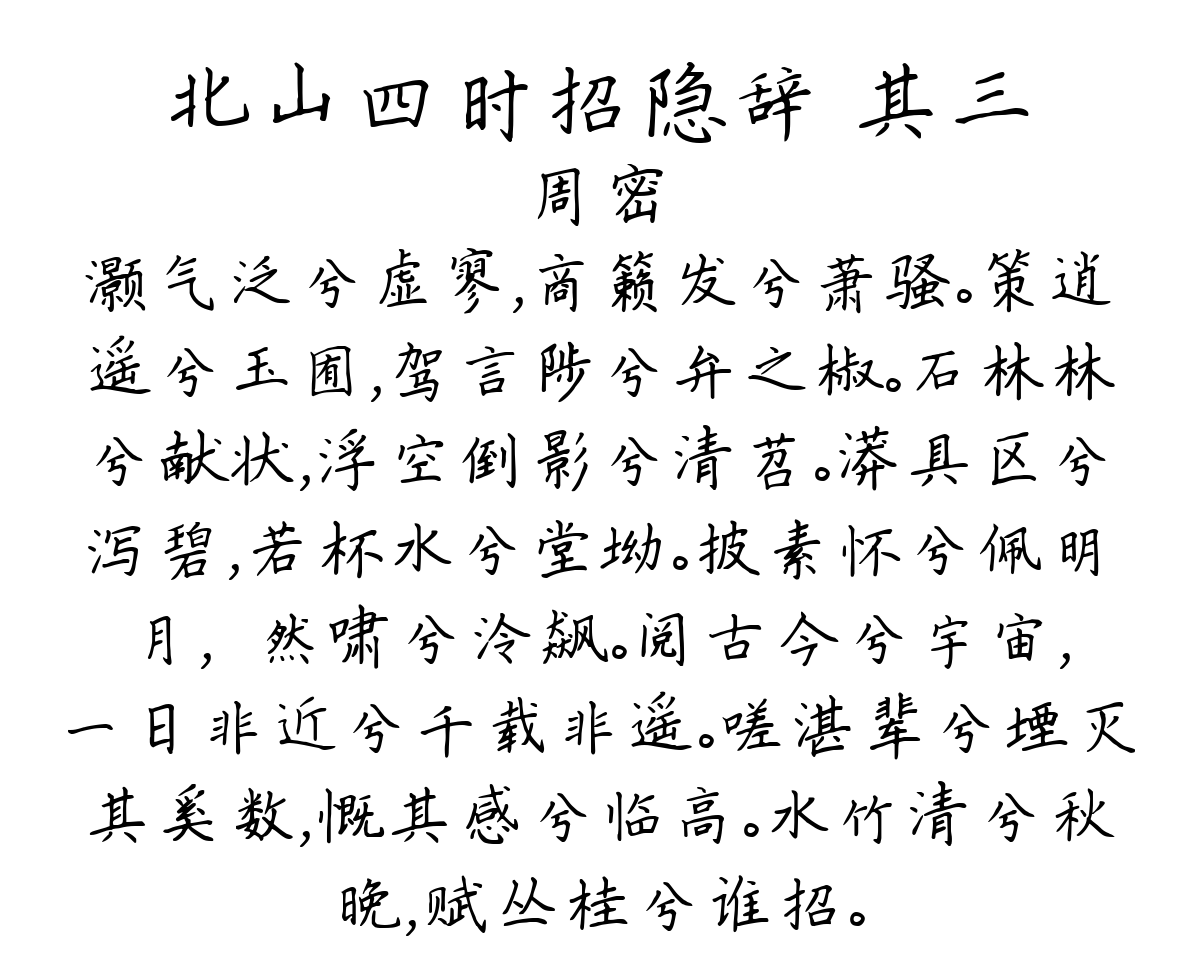 北山四时招隐辞 其三
周密
灏气泛兮虚寥,商籁发兮萧骚。策逍
遥兮玉囿,驾言陟兮弁之椒。石林林
兮献状,浮空倒影兮清苕。漭具区兮
泻碧,若杯水兮堂坳。披素怀兮佩明
月，然啸兮泠飙。阅古今兮宇宙，
一日非近兮千载非遥。嗟湛辈兮堙灭
其奚数,慨其感兮临高。水竹清兮秋
晚,赋丛桂兮谁招。